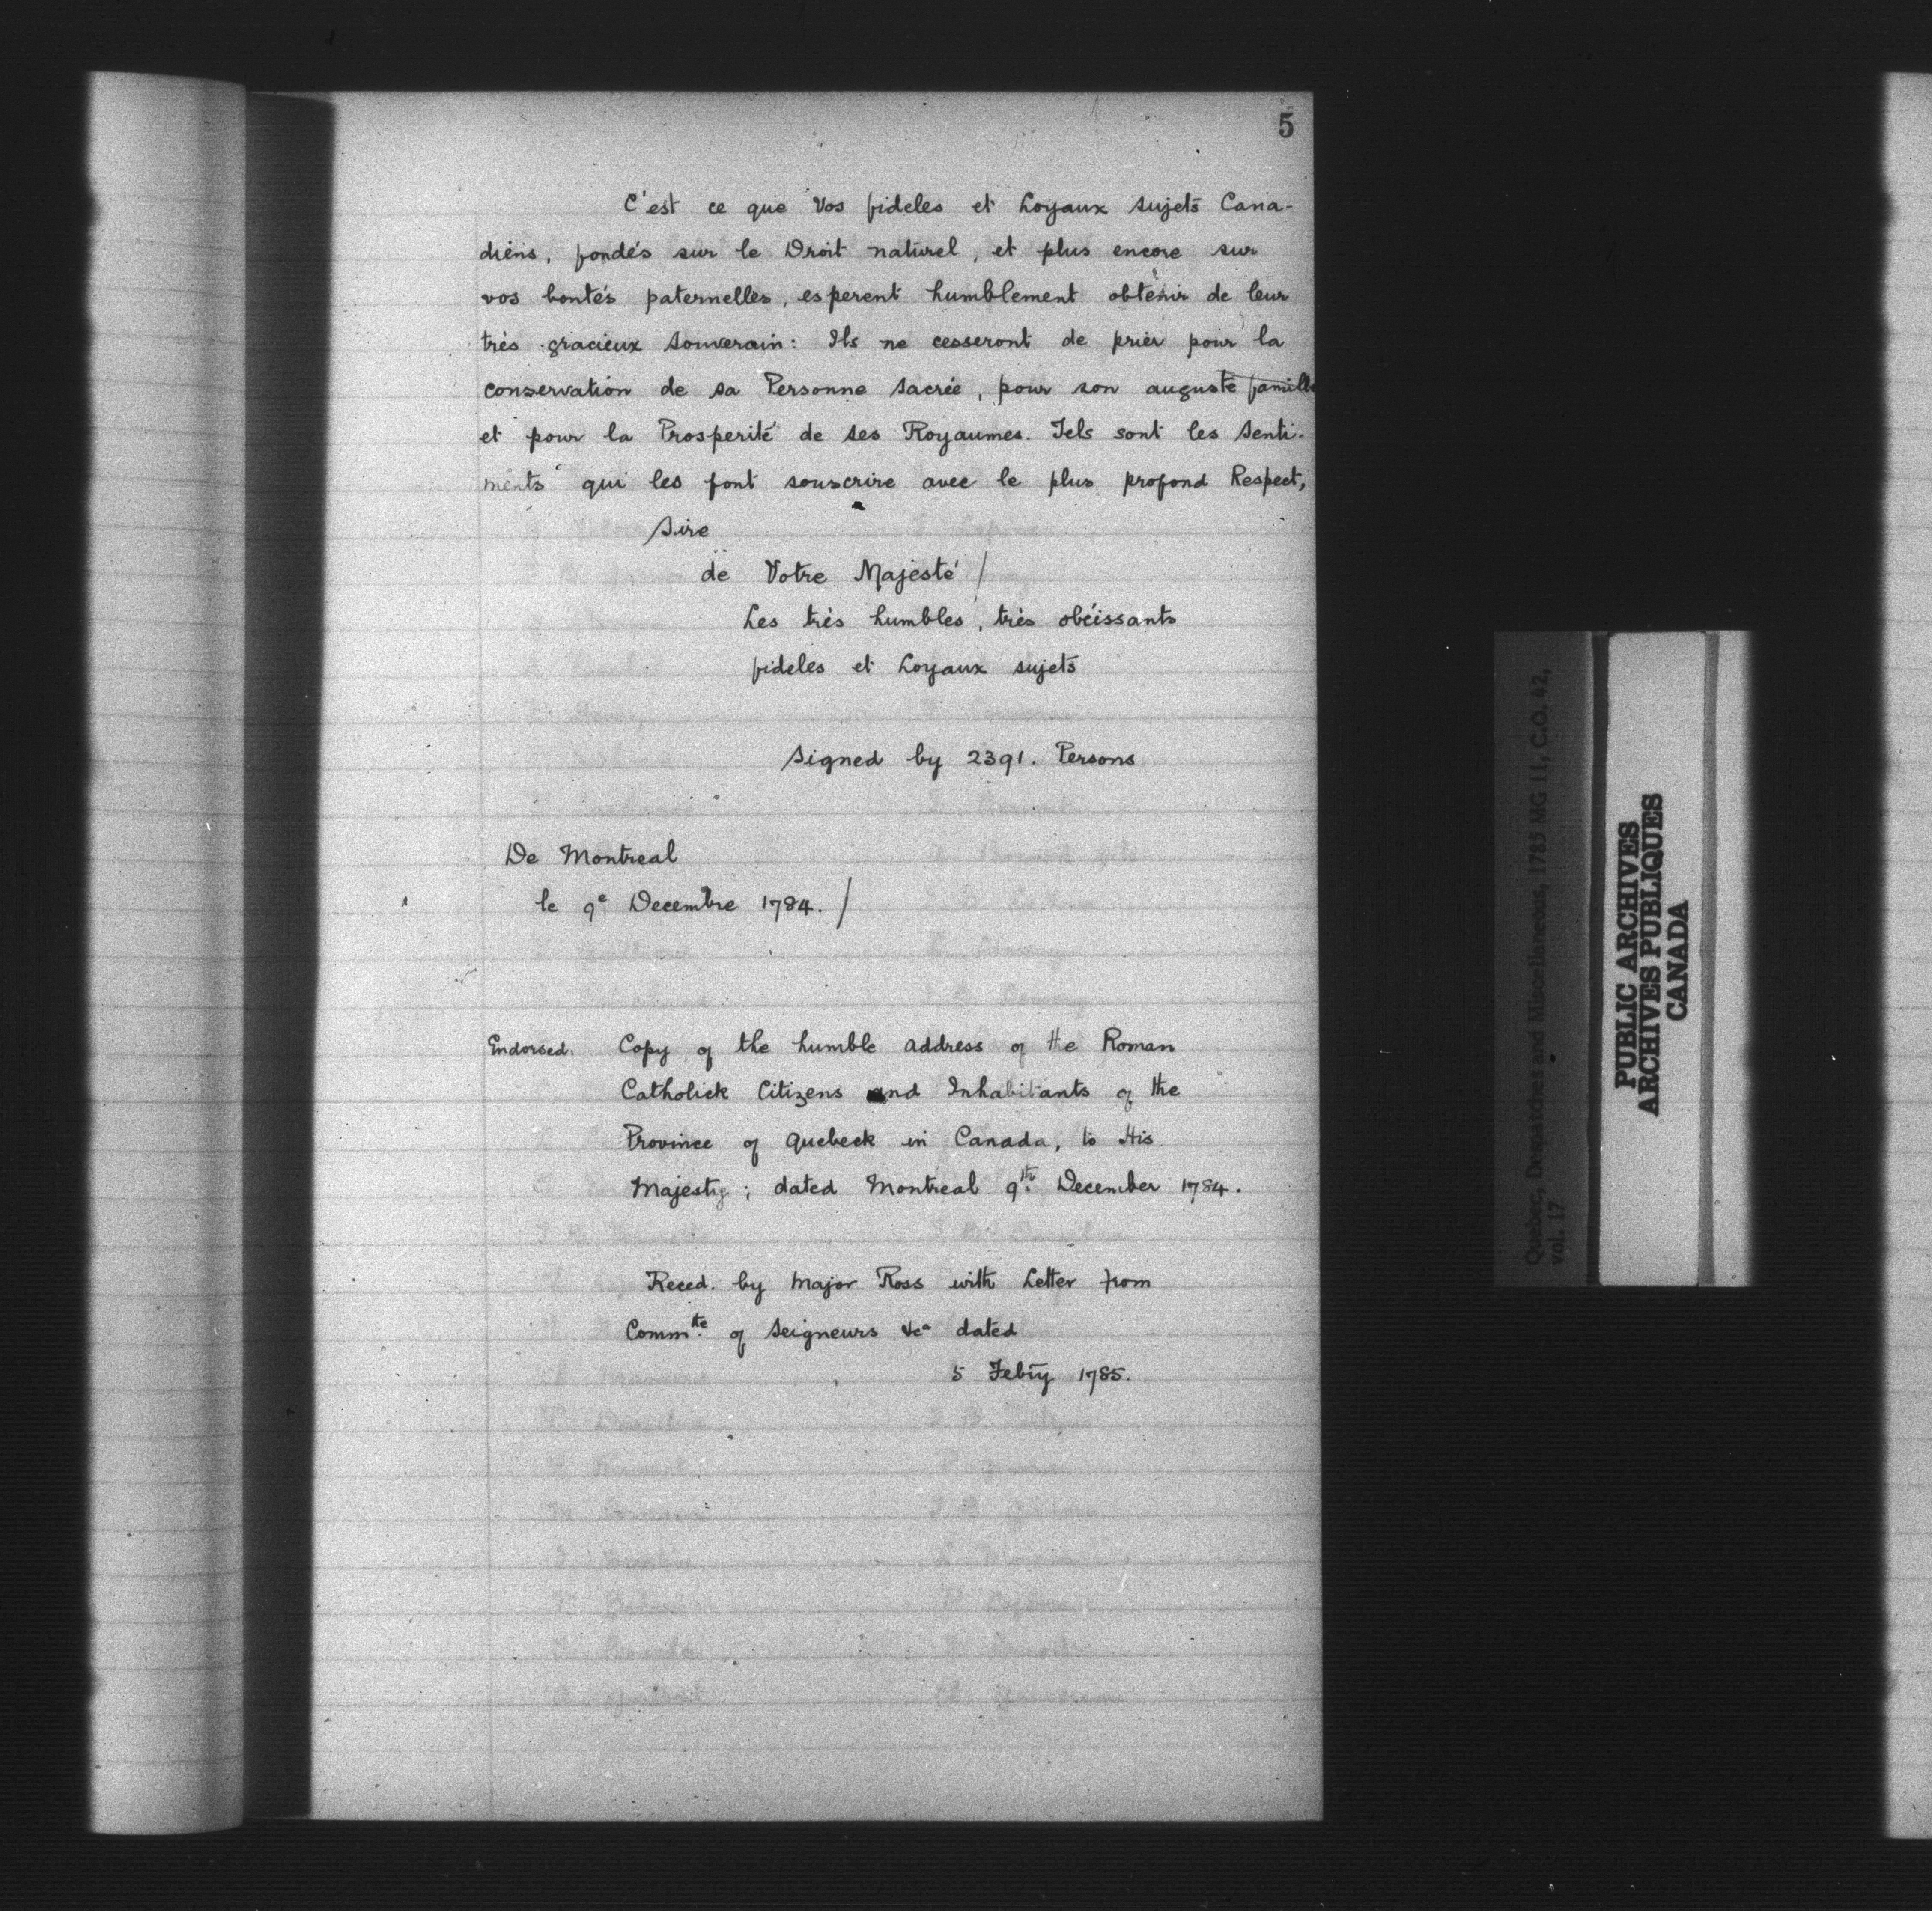 5
C'est ce que Vos fideles et Loyaux sujets Cana-
diens, fondés sur le Droit naturel, et plus encore sur
vos bontés paternelles, esperent humblement obtenir de leur
très gracieux Souverain: Ils ne cesseront de prier pour la
conservation de sa Personne Sacrée, pour son auguste famille
et pour la Prosperité de ses Royaumes. Tels sont les Senti-
ments qui les font souscrire avec le plus profond Respect,
Sire
de Votre Majesté /
Les très humbles, très obéissants
fideles et Loyaux sujets
Signed by 2391. Persons
De Montreal
le 9e Decembre 1784. /
Endorsed: Copy of the humble Address of the Roman
Catholick Citizens and Inhabitants of the
Province of Quebeck in Canada, to His
Majesty; dated Montreal 9th December 1784.
Reced. by Major Ross with Letter from
Commte of Seigneurs &ca dated
5 Febry 1785.
Quebec, Despatches and Miscellaneous, 1785 MG 11, C.O. 42,
vol. 17
PUBLIC ARCHIVES
ARCHIVES PUBLIQUES
CANADA